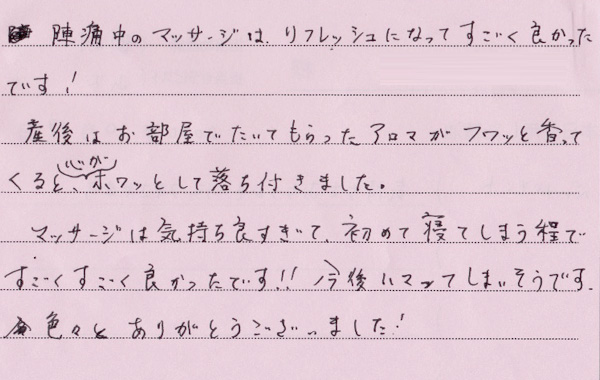 陣痛中のマッサージは、リフレッシュになってすごく良かった
です!
産後はお部屋でたいてもらったアロマがフワッと香って
くると、心がホワッとして落ち付きました。
マッサージは気持ち良すぎて、初めて寝てしまう程で
すごくすごく良かったです!! 今後ハマってしまいそうです。
色々とありがとうございました!